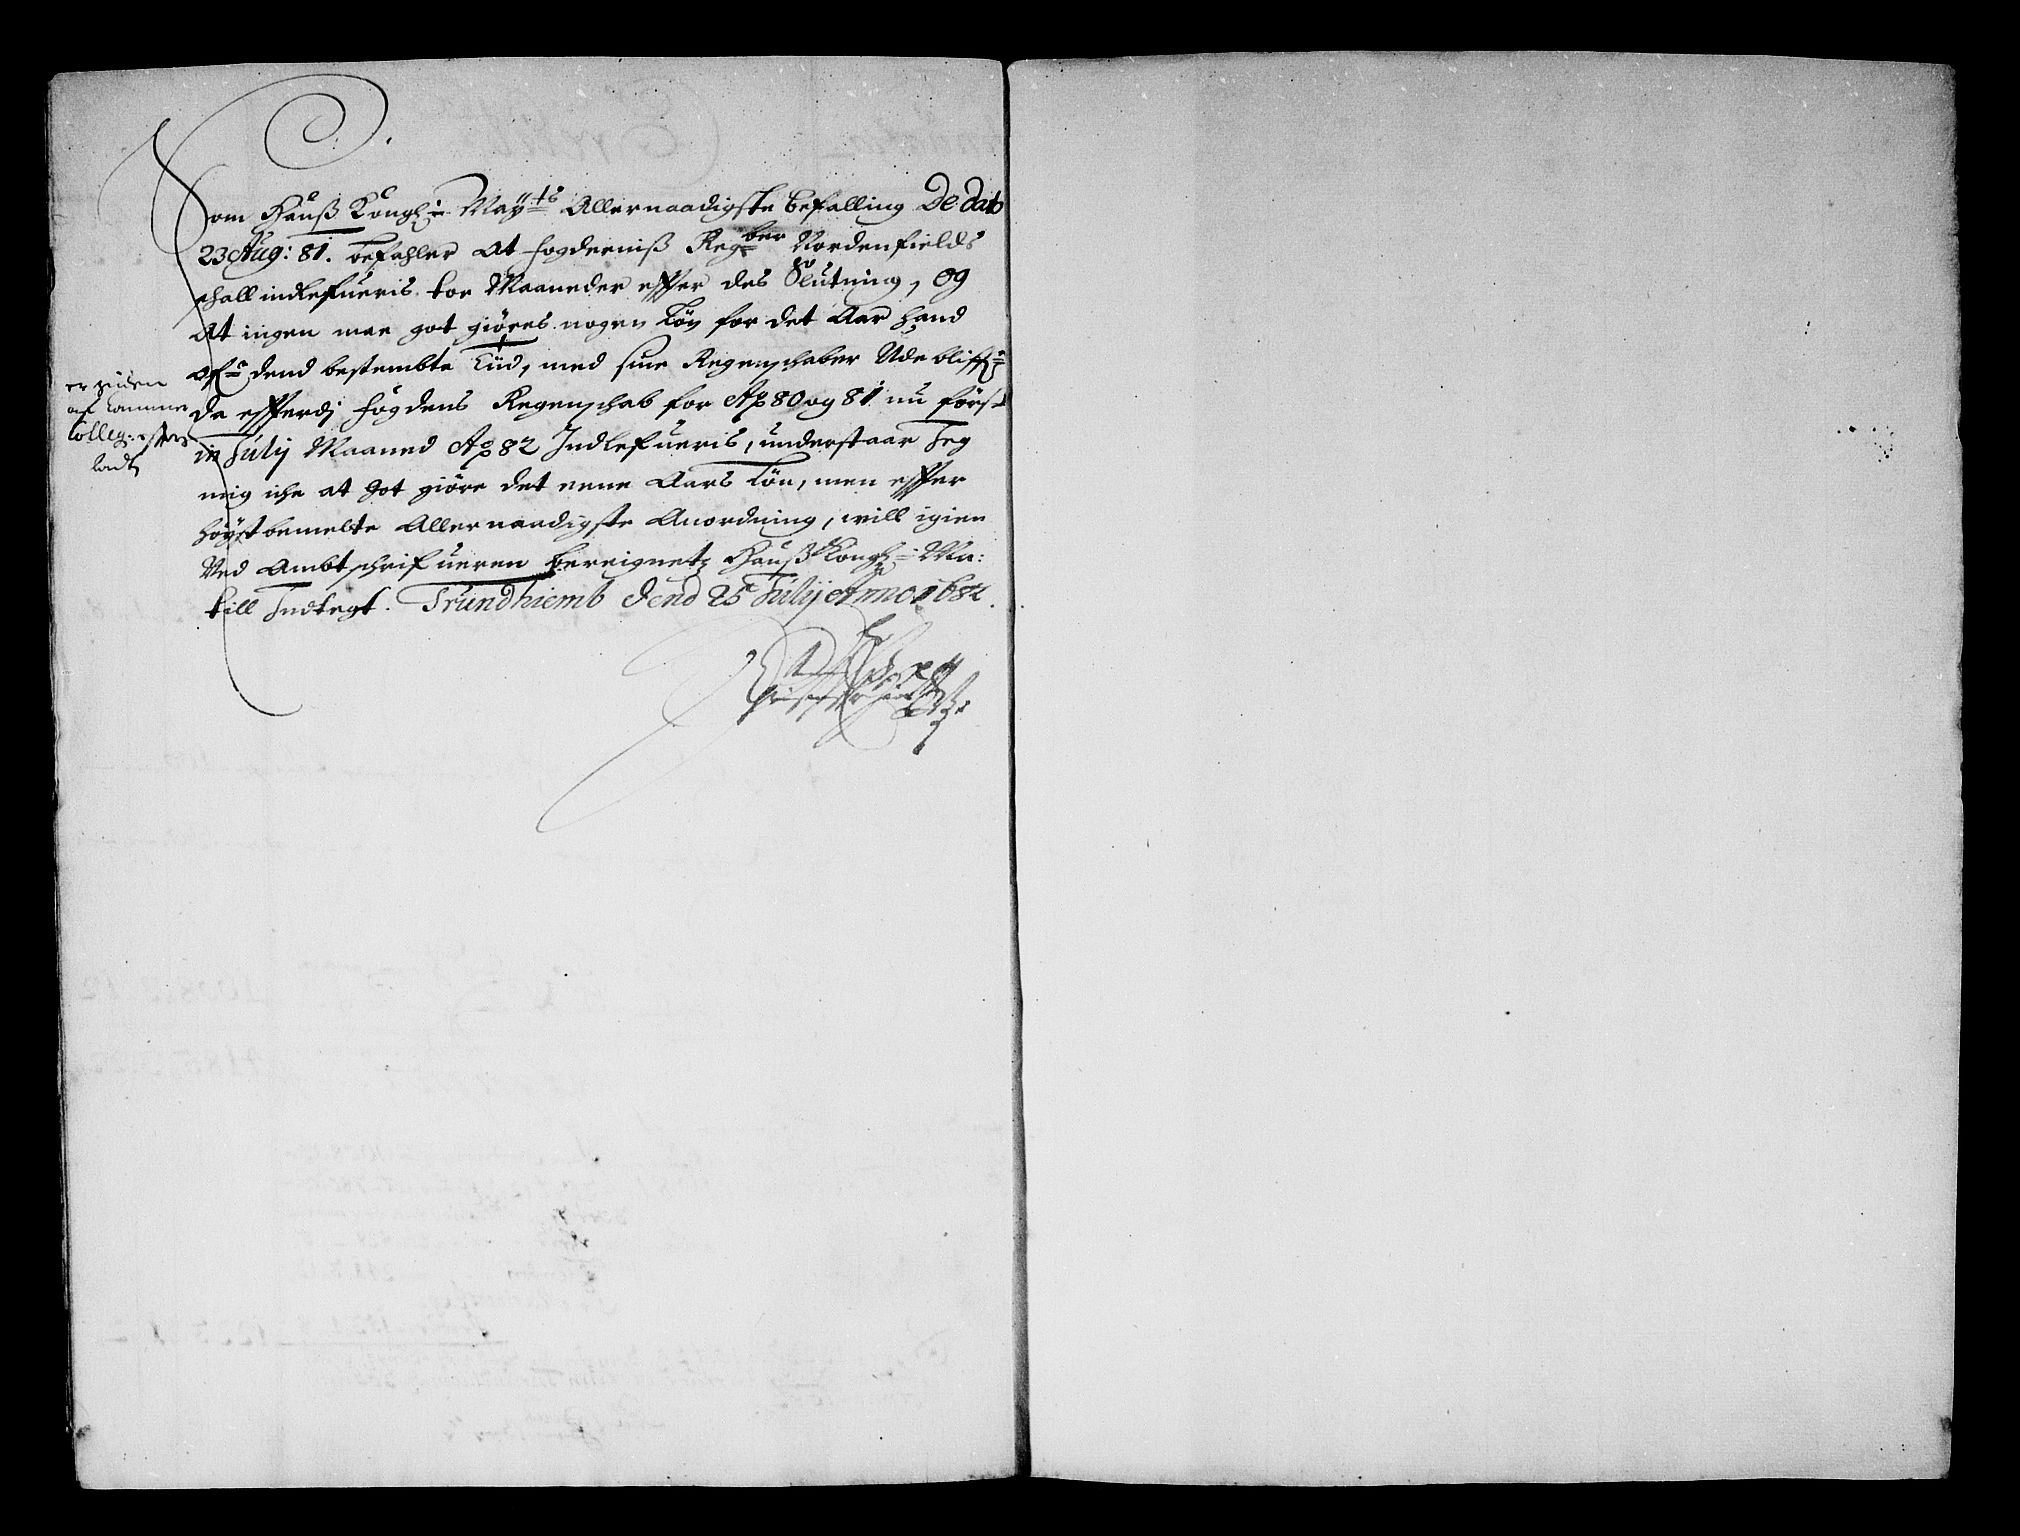 Som Hanß Kongl: Maÿts Allernaadigste befalling De dato
23 Aug: 81. befahler At fogderniß Regber Nordenfields
schall indlefueris. tor Maaneder effter des Slutning, Og
At ingen maa got giöres nogen Løn for det Aar hand
Ofr dend bestembte Tiid, med sine Regenschaber Ude bliffr
da effterdj fogdens Regenschab for Ao 80 og 81 nu först
in Julij Maaned Ao 82 Indlefueris, understaar Jeg
mig iche at Got giöre det eene Aars Lön, men effter
höystbemelte Allernaadigste Anordning, will igien
Ved Ambtschrifueren bereignet Hanß Kongl: Ma:
till Indtegt. Trundhiemb dend 25 Julij Anno 1682.
er siden
af Cammer
Colleg: effter
ladt